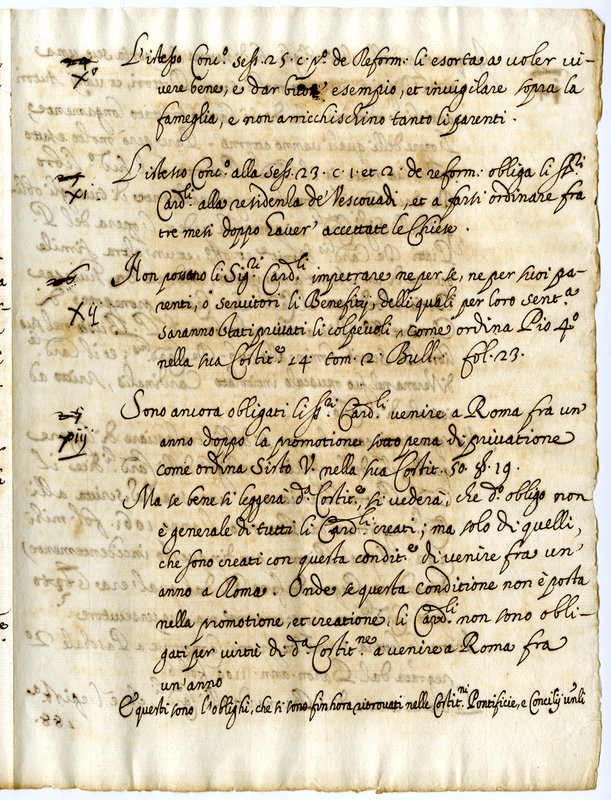 X° L'istesso Conc.° sess. 25. c. p.° de Reform. li esorta a voler vi-
vere bene, e dar buon esempio, et invigilare sopra la
fameglia, e non arricchischino tanto li parenti.
xi L'istesso Conc.° alla sess. 23. c. 1. et 2. de reform. obliga li ss.ri
Card.li alla residenza de Vescovadi, et a farsi ordinare fra
tre mesi doppo haver accettate le Chiese.
Xij Non possono li Sig.ri Card.li impetrare ne per se, ne per suoi pa-
renti, o servitori li Benefitij, delli quali per loro sent.a
saranno stati privati li colpevoli, come ordina Pio 4°
nella sua Costit.e 14 tom. 2. Bull. fol. 23.
piij Sono ancora obligati li ss.ri Card.li venire a Roma fra un
anno doppo la promotione sotto pena di privatione
come ordina Sisto V. nella sua Costit. 50. §. 19.
Ma se bene si leggerà d.a Costit.e, si vederà, che d.° obligo non
è generale di tutti li Card.li creati; ma solo di quelli,
che sono creati con questa condit.e di venire fra un
anno a Roma. Onde se questa conditione non è posta
nella promotione, et creatione, li Card.li non sono obli-
gati per virtù di d.a Costit.ne a venire a Roma fra
un'anno
E questi sono l'oblighi, che si sono fin hora ritrovati nelle Costit.ni Pontificie, e Concilij